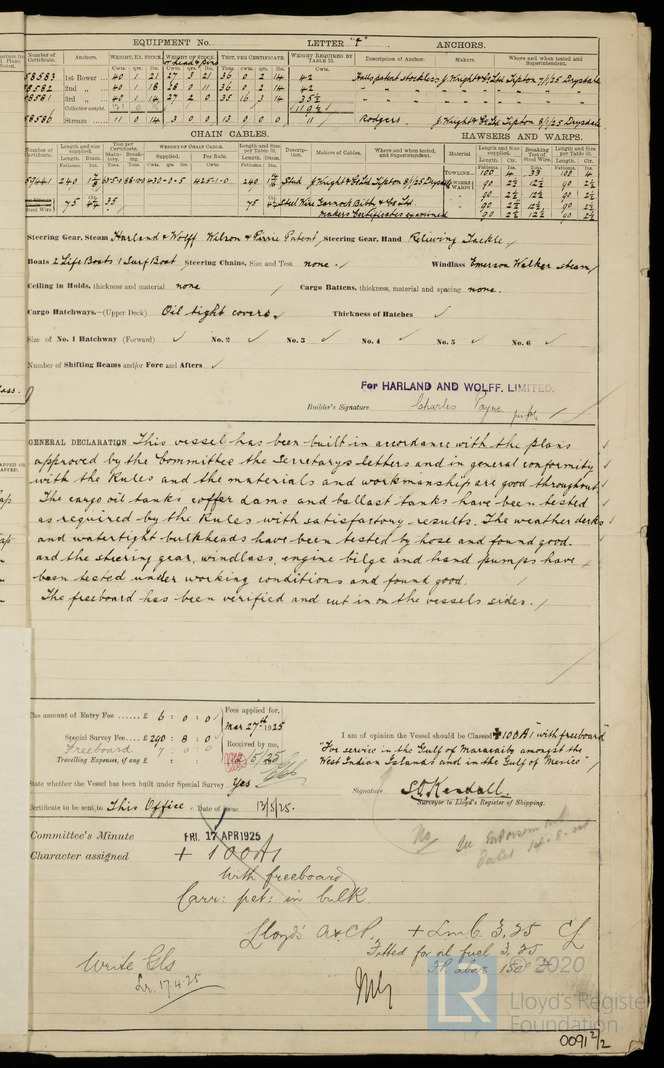 EQUIPMENT No. LETTER "t" ANCHORS.
Number of Certificate. Anchors. WEIGHT, EX. STOCK. WEIGHT OF STOCK. TEST, PER CERTIFICATE. WEIGHT REQUIRED BY TABLE 31. Description of Anchor. Makers. Where and when tested and Superintendent.
58583 1st Bower ... 40 1 21 27 3 21 36 0 2 14 42 Halls patent stockless J Wright & Co Ltd Tipton 7/1/25 Drysdale
58582 2nd " 40 1 18 28 0 11 36 0 2 14 42 " " " " " "
58581 3rd " 40 1 14 27 2 0 35 16 3 14 35½ " " " " " "
Collective weight.
58586 Stream ... 11 0 14 3 0 0 13 0 0 0 11 Rodgers. J Wright & Co Ltd Tipton 8/1/25 Drysdale
CHAIN CABLES. HAWSERS AND WARPS.
Number of Certificate. Length and size supplied. Test per Certificate. WEIGHT OF CHAIN CABLE. Length and size per Table 31. Description. Makers of Cables. Where and when tested, and Superintendent. Material. Length and size supplied. Breaking Test of Steel Wire. Length and size per Table 31.
Fathoms. Diam. Statutory. Breaking. Supplied. Per Rule. Fathoms. Diam.
TOWLINE 100 4 33 100 4
59441 240 430-0-5 425-1-0 240 Stud J Wright & Co Ltd Tipton 8/1/25 Drysdale
HAWSERS & WARPS 90 2½ 12½ 90 2½
" 90 2½ 12½ 90 2½
Steel Wire 75 35 75 Steel Wire Garnock Bibby & Co Ltd. " 90 2½ 12½ 90 2½
makers Certificates examined " 90 2½ 12½ 90 2½
Steering Gear, Steam Harland & Wolff Wilson & Pirrie Patent, Steering Gear, Hand Relieving Tackle
Boats 2 Life Boats 1 Surf Boat Steering Chains, Size and Test none. Windlass Emerson Walker steam
Ceiling in Holds, thickness and material none Cargo Battens, thickness, material and spacing none.
Cargo Hatchways.—(Upper Deck) Oil tight covers. Thickness of Hatches ✓
Size of No. 1 Hatchway (Forward) ✓ No. 2 ✓ No. 3 ✓ No. 4 ✓ No. 5 ✓ No. 6 ✓
Number of Shifting Beams and/or Fore and Afters ✓
For HARLAND AND WOLFF, LIMITED.
Builder's Signature Charles Payne
GENERAL DECLARATION This vessel has been built in accordance with the plans
approved by the Committee the Secretarys letters and in general conformity
with the Rules and the materials and workmanship are good throughout.
The cargo oil tanks coffer dams and ballast tanks have been tested
as required by the Rules with satisfactory results. The weather decks
and watertight bulkheads have been tested by hose and found good.
and the steering gear, windlass, engine bilge and hand pumps have
been tested under working conditions and found good.
The freeboard has been verified and cut in on the vessels sides.
The amount of Entry Fee ...... £ 6 : 0 : 0 Fees applied for,
Mar 27th 1925
Special Survey Fee .... £ 290 : 8 : 0 Received by me,
Freeboard 7 : 0 : 0
Travelling Expenses, if any £ : : 2/5/25
I am of opinion the Vessel should be Classed ✠ 100A1 "with freeboard"
"For service in the Gulf of Maracaibo amongst the
West Indian Islands and in the Gulf of Mexico"
State whether the Vessel has been built under Special Survey. Yes
Signature S.O. Kendall.
Surveyor to Lloyd's Register of Shipping.
Certificate to be sent to This Office. Date of issue 13/5/25.
No See Endorsement
dated 14.8.
Committee's Minute FRI. 17 APR 1925
Character assigned + 100A1
with freeboard
Carr: pet: in bulk.
Lloyd's A & C P. + L.M.C. 3, 25 CL
Fitted for oil fuel 3, 25
F.P. above 150° F.
Write Gls
Lr. 17.4.25
© 2020
LR
Lloyd's Register
Foundation
0091 2/2